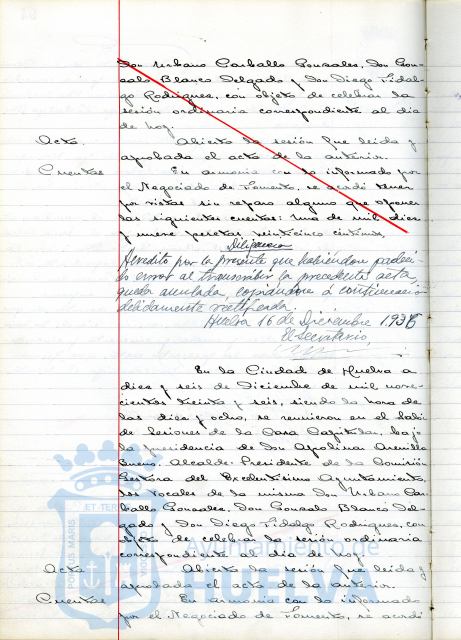 Don Urbano Carballo Gonzales, Don Gon-
zalo Blanco Delgado y Don Diego Fidal-
go Rodriguez, con objeto de celebrar la
sesión ordinaria correspondiente al dia
de hoy.
Acta. Abierta la sesión fue leida y
aprobada el acta de la anterior.
Cuentas En armonia con lo informado por
el Negociado de Fomento, se acordó tener
por vistas sin reparo alguno que oponer
las siguientes cuentas: Una de mil dies
y nueve pesetas, veinticinco centimos,
Diligencia
Acredito por la presente que habiéndose padeci-
do error al transcribir la precedente acta
queda anulada, copiándose á continuación
debidamente rectificada.
Huelva 16 de Diciembre 1936
El Secretario,
En la Ciudad de Huelva a
dies y seis de Diciembre de mil nove-
cientos treinta y seis, siendo la hora de
las dies y ocho, se reunieron en el Salón
de Sesiones de la Casa Capitular, bajo
la presidencia de Don Apolinar Arenillas
Bueno. Alcalde-Presidente de la Comisión
Gestora del Excelentísimo Ayuntamiento,
los vocales de la misma Don Urbano Car-
ballo Gonzales, Don Gonzalo Blanco Del-
gado y Don Diego Fidalgo Rodriguez, con
objeto de celebrar la sesión ordinaria
correspondiente al dia de hoy.
Acta Abierta la sesión fue leida y
aprobada el acta de la anterior.
Cuentas En armonia con lo informado
por el Negociado de Fomento, se acordó
PORTUS MARIS ET TERRÆ
Ayuntamiento de
HUELVA